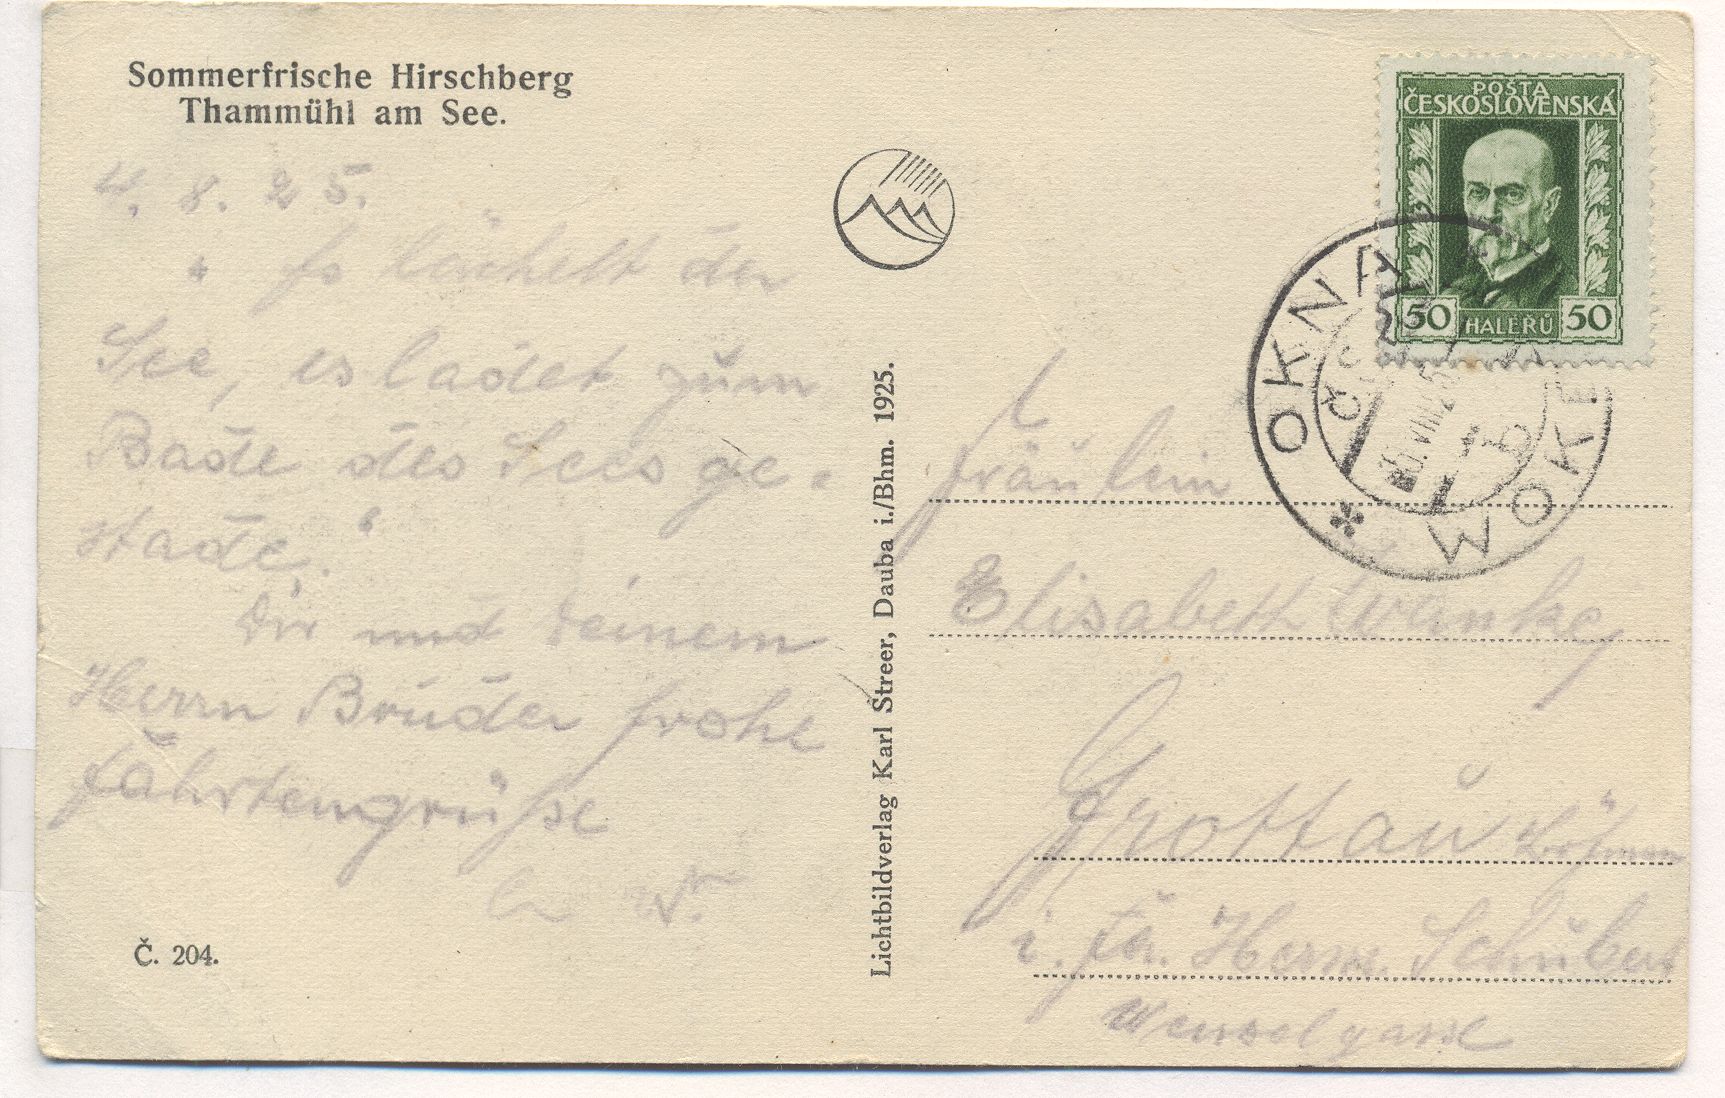 Sommerfrische Hirschberg
Thammühl am See.
4. 8. 25.
„Es lächelt der
See, es ladet zum
Bade des Sees ge-
stade.“
Dir und Deinem
Herrn Bruder frohe
Fahrtengrüße
W.
Č. 204.
Lichtbildverlag Karl Streer, Dauba i./Bhm. 1925.
POŠTA
ČESKOSLOVENSKÁ
50 HALÉŘŮ 50
OKNA
MOKŘ
VIII 25
Fräulein
Elisabeth
Grottau
i. Fa. Herrn Schubert